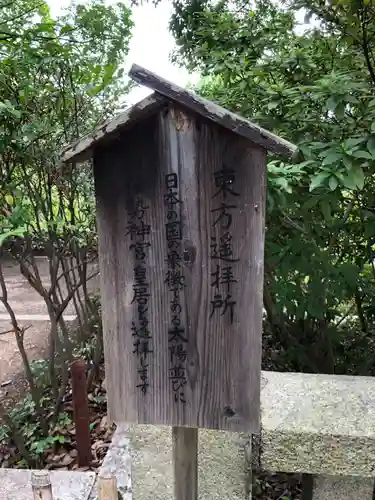 東方遥拝所
日本の国の象徴である太陽並びに
神宮皇居を遥拝します